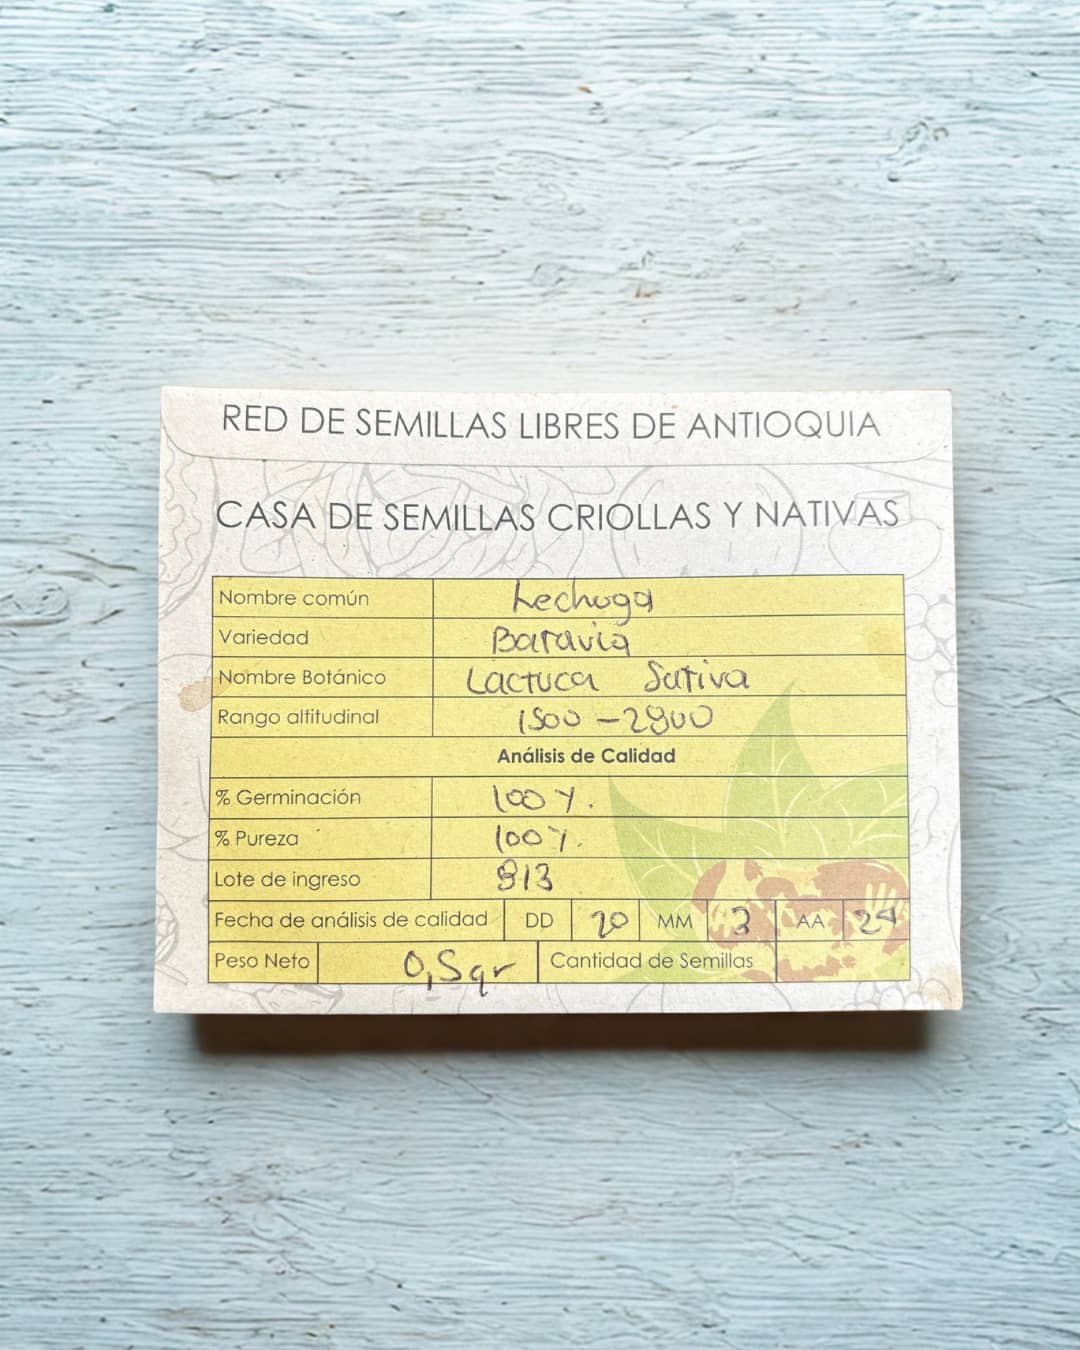 RED DE SEMILLAS LIBRES DE ANTIOQUIA
CASA DE SEMILLAS CRIOLLAS Y NATIVAS
Nombre común Lechuga
Variedad Baravia
Nombre Botánico Lactuca Sativa
Rango altitudinal 1500 - 2800
Análisis de Calidad
% Germinación 100 %.
% Pureza 100 %.
Lote de ingreso 813
Fecha de análisis de calidad DD 20 MM 3 AA 24
Peso Neto 0,5 gr Cantidad de Semillas